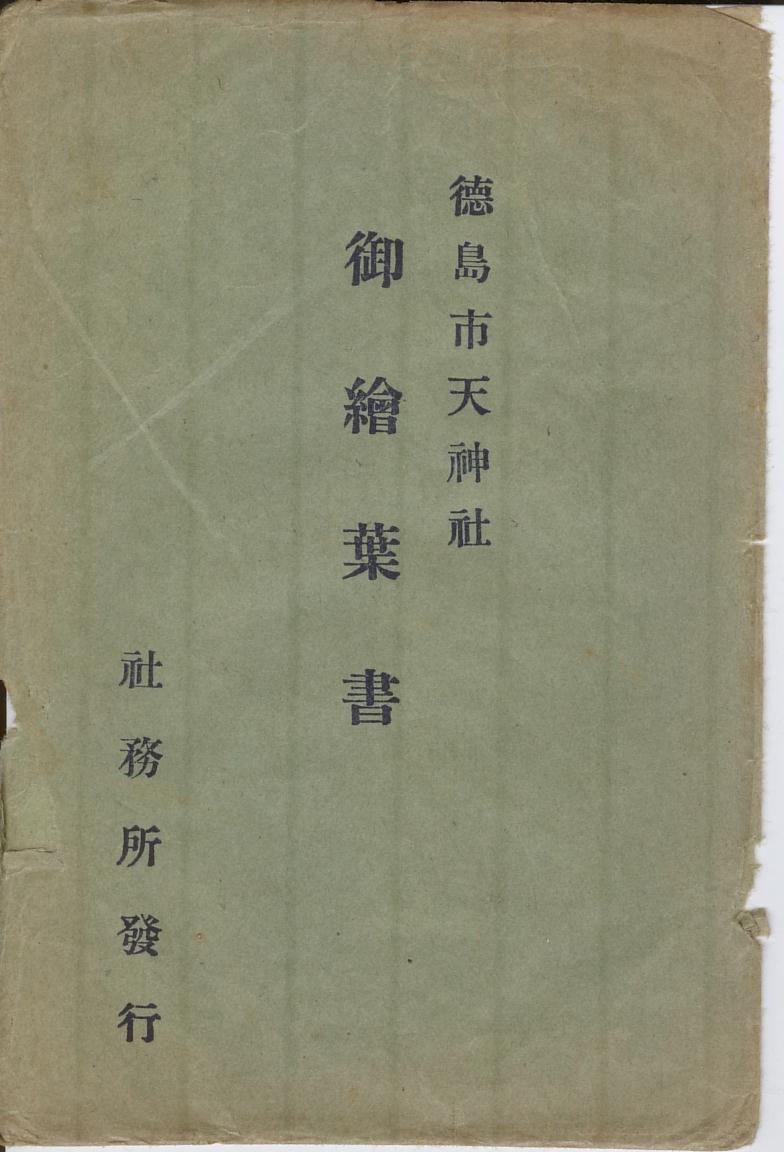 德島市天神社
御繪葉書
社務所發行